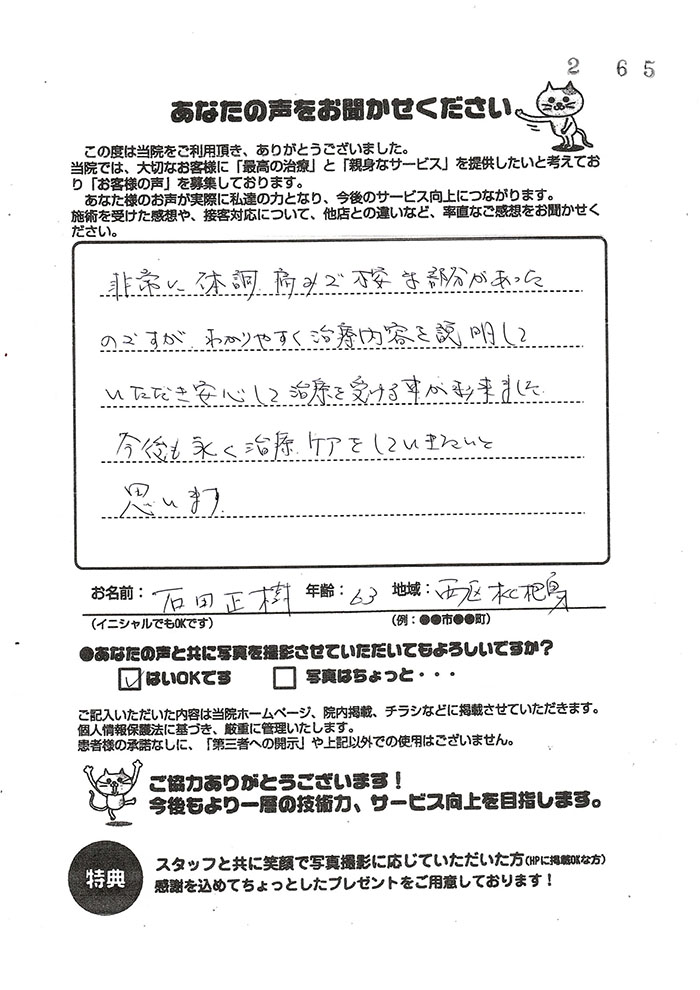 2 65
あなたの声をお聞かせください
この度は当院をご利用頂き、ありがとうございました。
当院では、大切なお客様に「最高の治療」と「親身なサービス」を提供したいと考えてお
り「お客様の声」を募集しております。
あなた様のお声が実際に私達の力となり、今後のサービス向上につながります。
施術を受けた感想や、接客対応について、他店との違いなど、率直なご感想をお聞かせく
ださい。
非常に体調、痛みで不安な部分があった
のですが、わかりやすく治療内容を説明して
いただき安心して治療を受ける事が出来ました
今後も永く治療、ケアをしていきたいと
思います
お名前：石田正樹 年齢：63 地域：西区枇杷島
（イニシャルでもOKです） （例：●●市●●町）
●あなたの声と共に写真を撮影させていただいてもよろしいですか？
はいOKです 写真はちょっと・・・
ご記入いただいた内容は当院ホームページ、院内掲載、チラシなどに掲載させていただきます。
個人情報保護法に基づき、厳重に管理いたします。
患者様の承諾なしに、「第三者への開示」や上記以外での使用はございません。
ご協力ありがとうございます！
今後もより一層の技術力、サービス向上を目指します。
特典
スタッフと共に笑顔で写真撮影に応じていただいた方（HPに掲載OKな方）
感謝を込めてちょっとしたプレゼントをご用意しております！